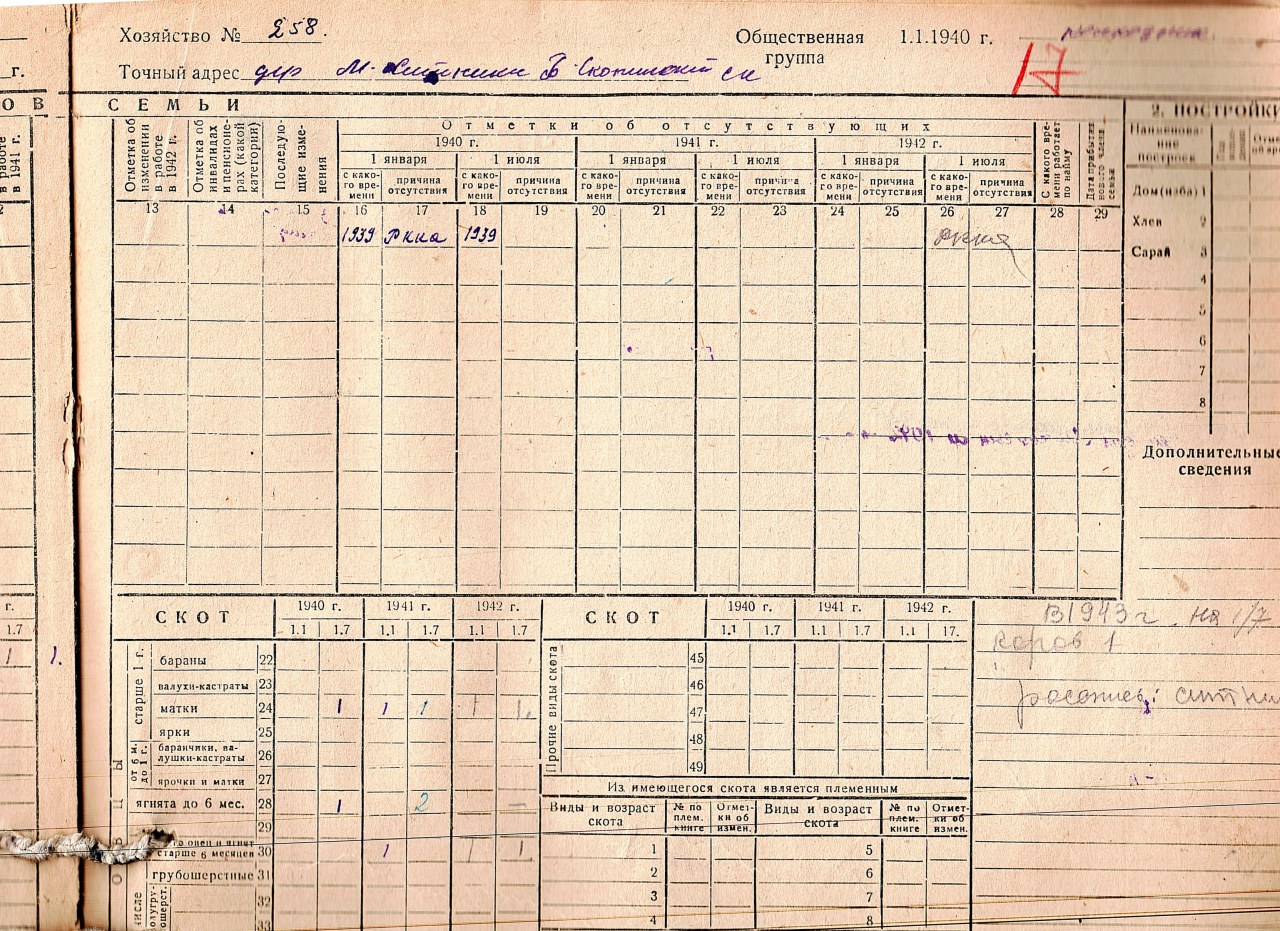 Хозяйство № 258.
Общественная группа 1.1.1940 г.
Точный адрес дер М. ск
17
г.
ОВ СЕМЬИ
2. ПОСТРОЙКИ
в работе в 1941 г.
Отметка об изменении в работе в 1942 г.
Отметка об инвалидах и пенсионерах (какой категории)
Последующие изменения
Отметки об отсутствующих
1940 г. 1941 г. 1942 г.
1 января 1 июля 1 января 1 июля 1 января 1 июля
с какого времени причина отсутствия с какого времени причина отсутствия с какого времени причина отсутствия с какого времени причина отсутствия с какого времени причина отсутствия с какого времени причина отсутствия
С какого времени работает по найму
Дата прибытия нового члена семьи
Наименование построек
13 14 15 16 17 18 19 20 21 22 23 24 25 26 27 28 29
1939 Ркка 1939 Ркка
Дом(изба) 1
Хлев 2
Сарай 3
4
5
6
7
8
Дополнительные сведения
г.
1.7
1 1.
СКОТ 1940 г. 1941 г. 1942 г.
1.1 1.7 1.1 1.7 1.1 1.7
ОВЦЫ
старше 1 г.
бараны 22
валухи-кастраты 23
матки 24 1 1 1 1 1
ярки 25
от 6 м. до 1 г.
баранчики, валушки-кастраты 26
ярочки и матки 27
ягнята до 6 мес. 28 1 2 –
29
овец и ягнят старше 6 месяцев 30 1 1 1
грубошерстные 31
32
33
СКОТ 1940 г. 1941 г. 1942 г.
1.1 1.7 1.1 1.7 1.1 17.
Прочие виды скота
45
46
47
48
49
Из имеющегося скота является племенным
Виды и возраст скота № по плем. книге Отметки об измен. Виды и возраст скота № по плем. книге Отметки об измен.
1 5
2 6
3 7
4 8
В 1943 г. на 1/7
Коров 1